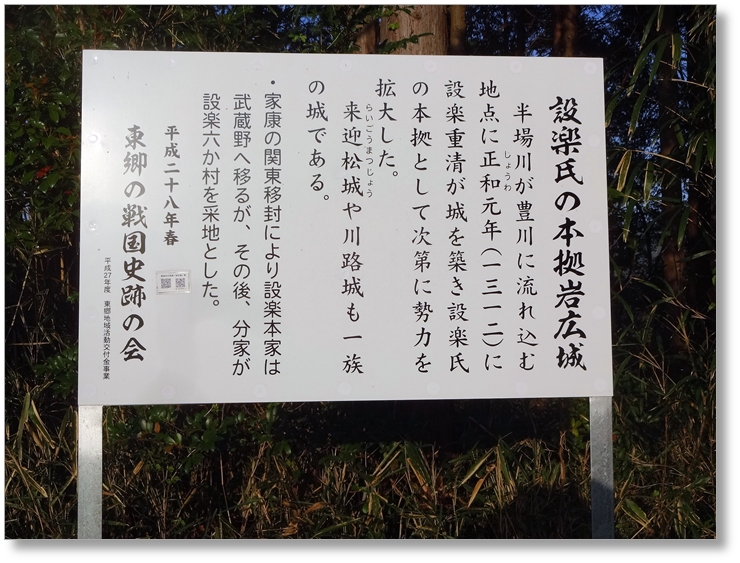 設楽氏の本拠岩広城
半場川が豊川に流れ込む
地点に正和元年(一三一二)に
しょうわ
設楽重清が城を築き設楽氏
の本拠として次第に勢力を
拡大した。
来迎松城や川路城も一族
らいごうまつじょう
の城である。
・家康の関東移封により設楽本家は
武蔵野へ移るが、その後、分家が
設楽六か村を采地とした。
平成二十八年春
東郷の戦国史跡の会
平成27年度 東郷地域活動交付金事業